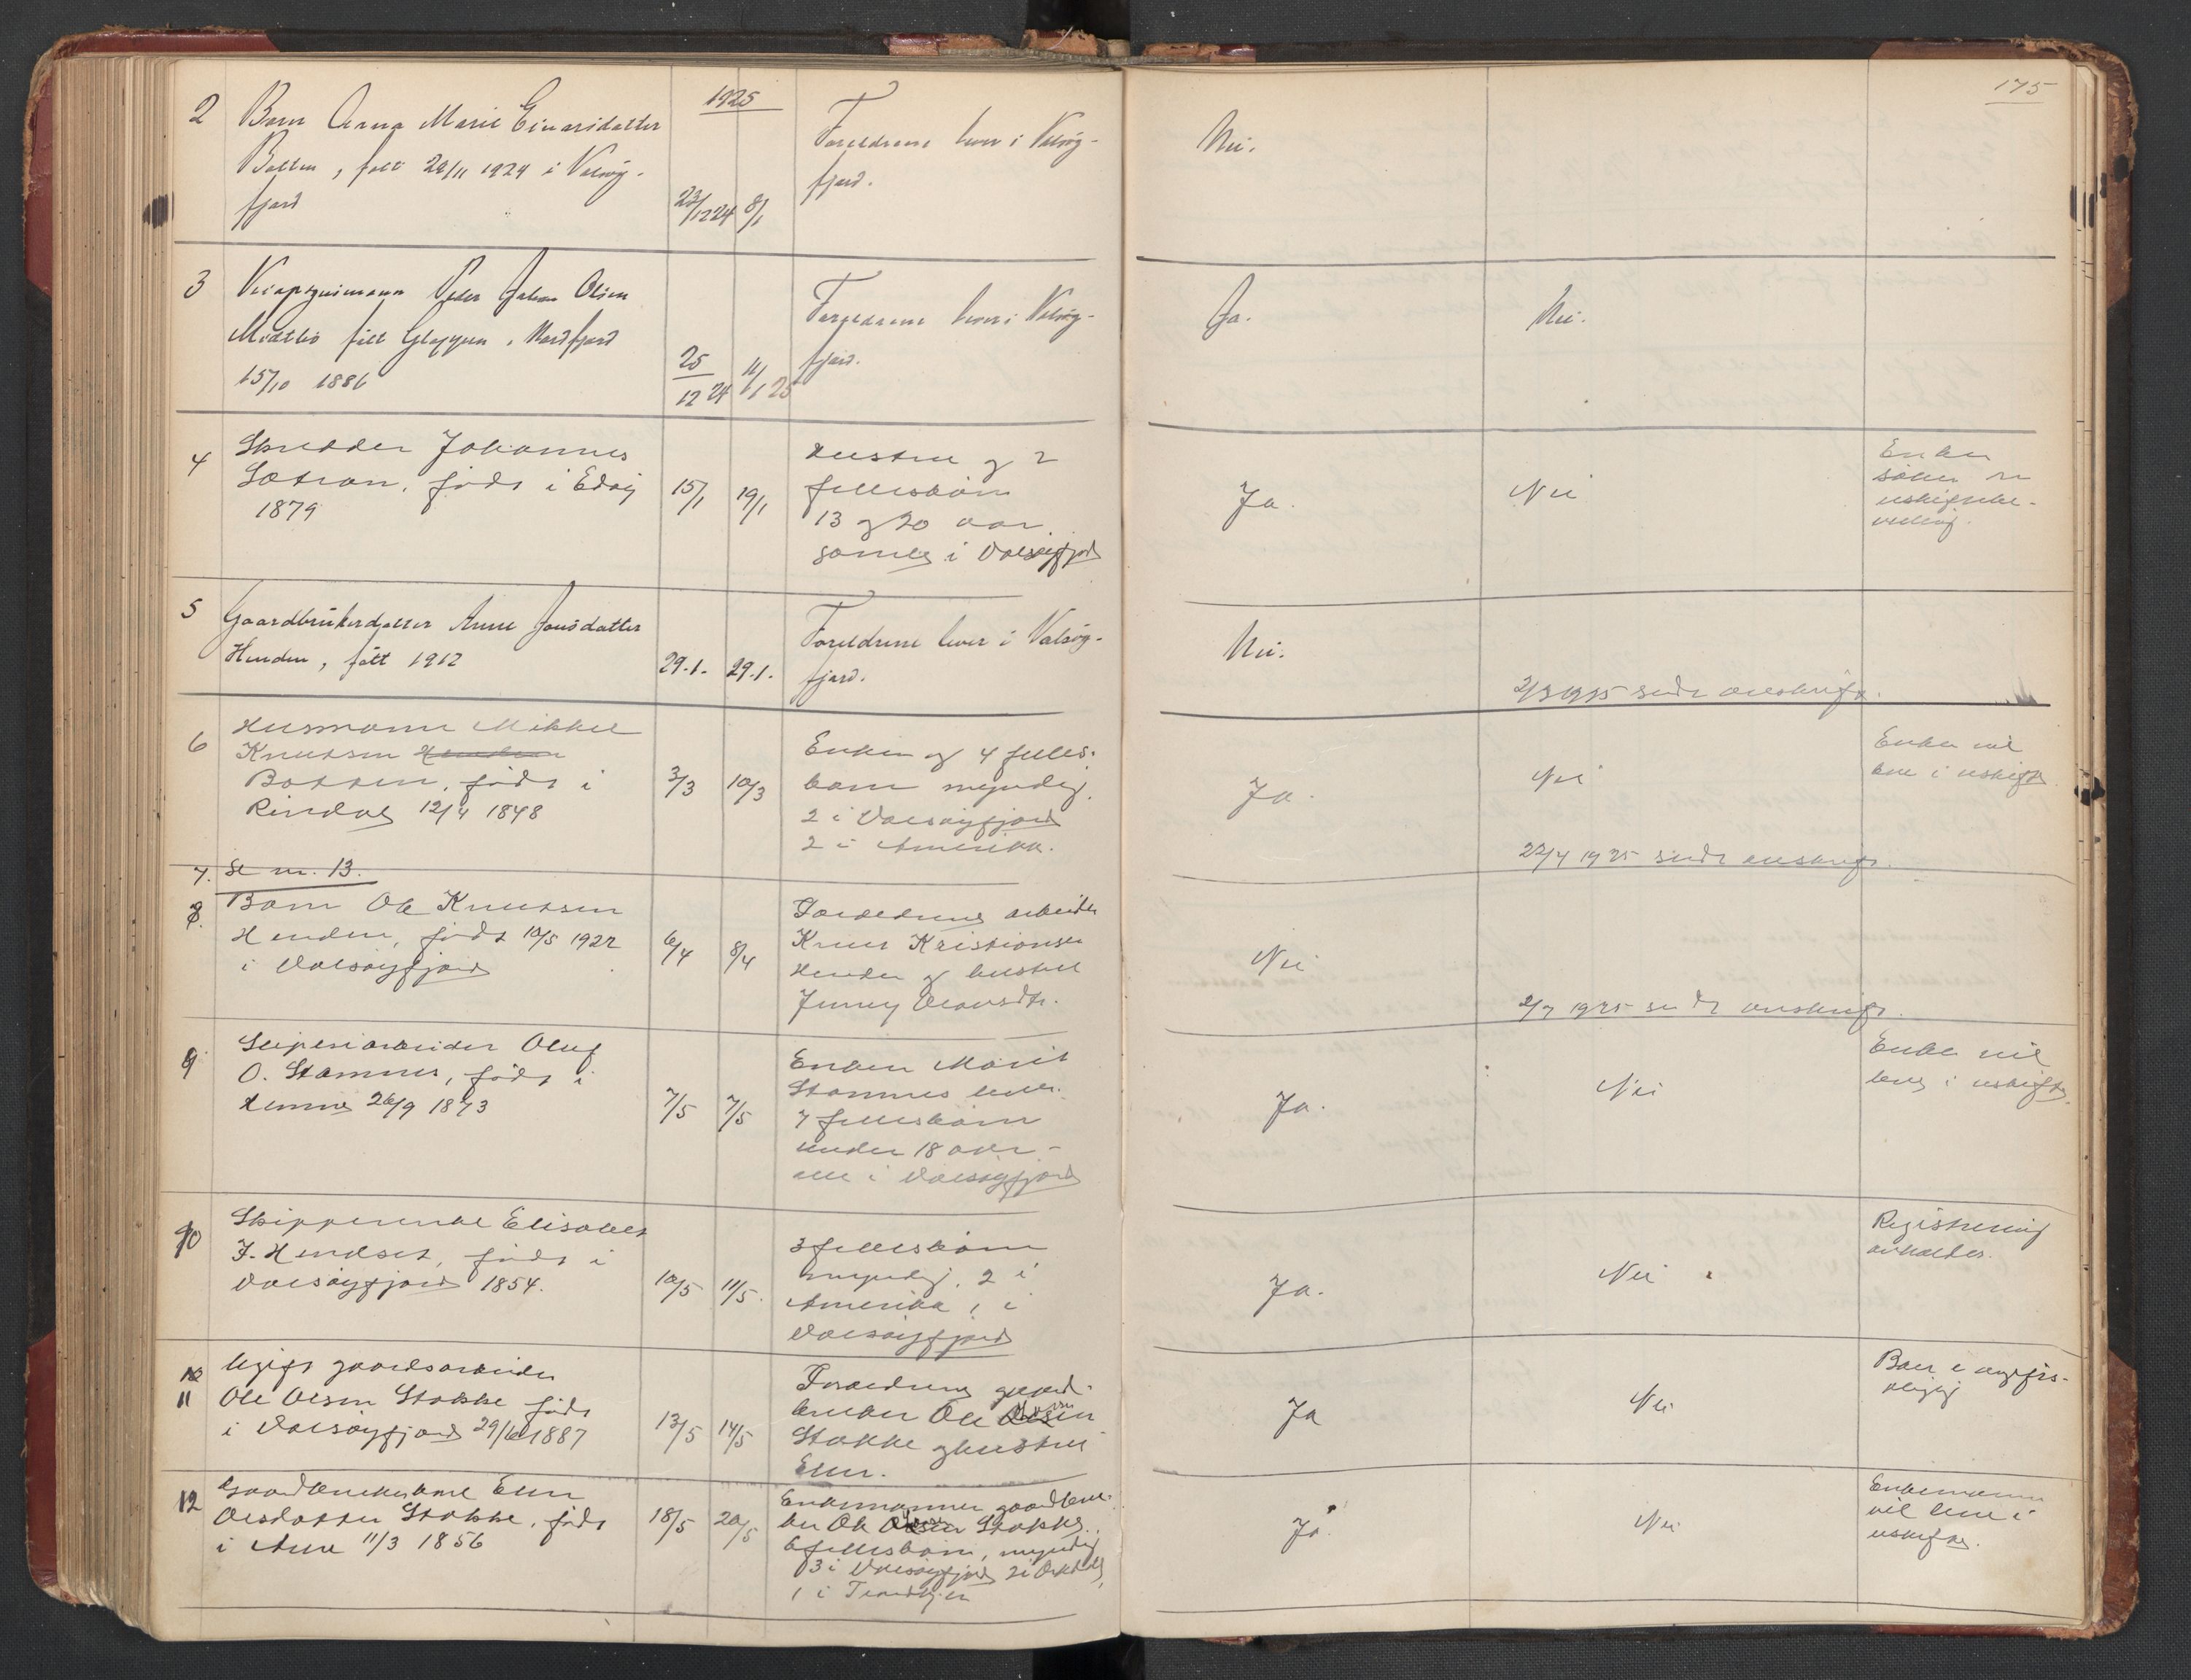 175
1925
2 Barn Anna Marie Einarsdatter
Botten, født 24/11 1924 i Valsøy-
fjord
23/12 24 8/1
Foreldrene lever i Valsøy-
fjord.
Nei.
3 Peder Johan Olsen
født Gloppen, Nordfjord
15/10 1886
25/12 24 11/1 25
Foreldrene lever i Valsøy-
fjord.
Ja. Nei.
4 Skredder Johannes
Sætran, født i Edøy
1879
15/1 19/1
Hustru og 2
fellesbørn
13 og 20 aar
samtlig i Valsøyfjord
Ja. Nei
Enken
søker om
uskifte-
5 Gaardbrukerdatter Anne Jonsdatter
Henden, født 1912
29.1. 29.1.
Foreldrene lever i Valsøy-
fjord.
Nei.
2/3 1925 sendt avskrift.
6 Husmann Mikkel
Knutsen Henden
Botten, født i
Rindal 12/4 1848
3/3 10/3
Enken og 4 felles-
barn myndig.
2 i Valsøyfjord
2 i Amerika.
Ja. Nei
Enken vil
leve i uskifte
22/4 1925 sendt avskrift.
7. Se nr. 13.
8. Barn Ole Knutsen
Henden, født 10/5 1922
i Valsøyfjord
6/4 8/4
Foreldrene arbeider
Knut Kristiansen
Henden og hustru
Jenny Olavsdtr.
Nei
2/7 1925 sendt avskrift.
9 Sliperiarbeider Oluf
O. Stamnes, født i
Hemne 26/9 1873
7/5 7/5
Enken Marit
Stamnes lever.
7 fellesbørn
under 18 aar -
alle i Valsøyfjord
Ja. Nei
Enken vil
leve i uskifte.
10 Skipperenke Elisabet
J. Hendset, født i
Valsøyfjord 1854.
10/5 11/5.
3 fellesbørn
myndig. 2 i
Amerika 1 i
Valsøyfjord
Ja. Nei
Registrering
avholdes.
11 Ugift gaardsarbeider
Ole Olsen Stokke født
i Valsøyfjord 29/6 1887
13/5 14/5
Foreldrene gaard-
bruker Ole
Stokke og hustru
Elen.
Ja Nei
12 Gaardbrukerkone Elen
Olsdatter Stokke, født
i Aure 11/3 1856
18/5 20/5
Enkemannen gaardbru-
ker Ole Stokke.
6 fellesbørn, myndig
3 i Valsøyfjord 2 i Orkdal,
1 i Trondhjem
Ja. Nei
Enkemannen
vil leve i
uskifte.